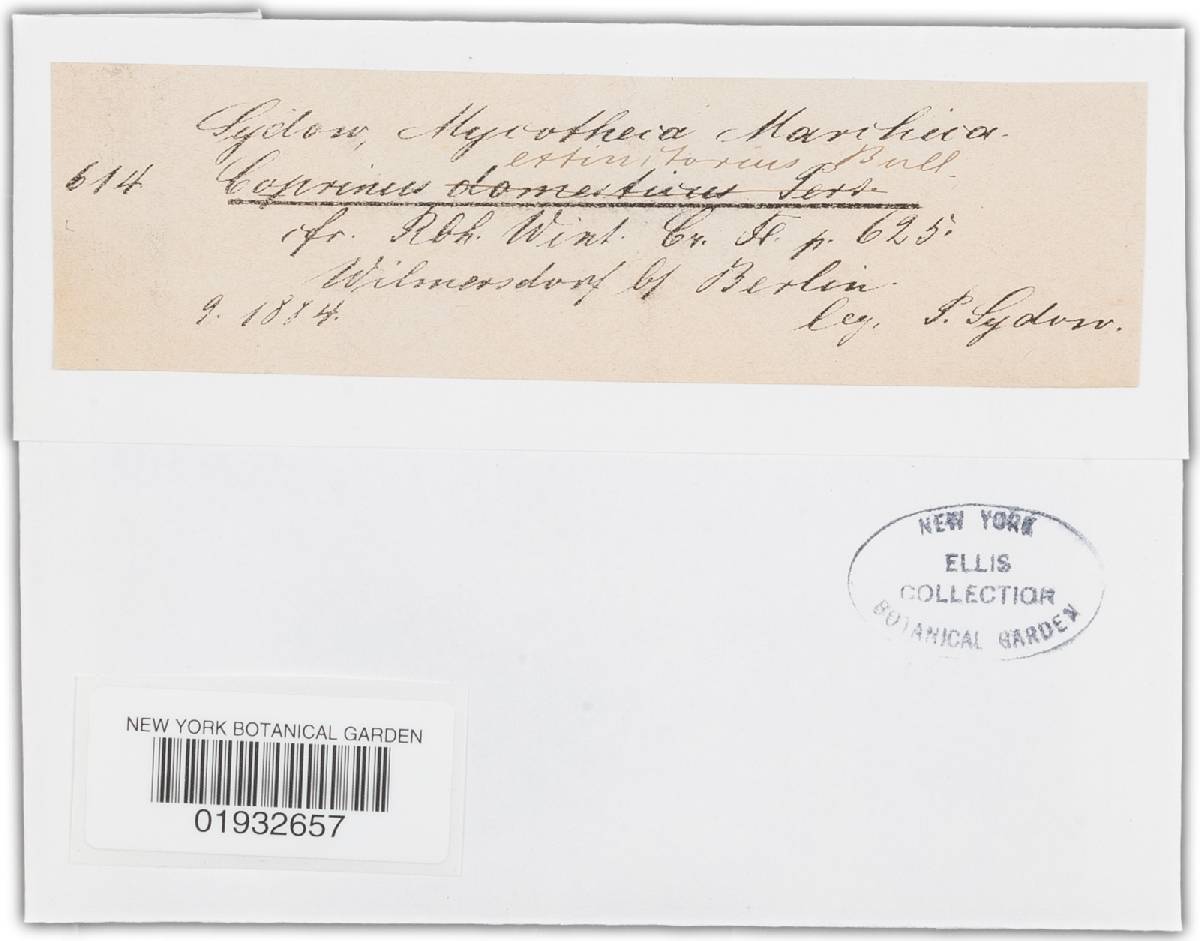 Sydow, Mycotheca Marchica.
extinctorius Bull.
614 Coprinus domesticus Pers.
cfr. Rbh. Wint. Cr. Fl. p. 625.
Wilmersdorf b/ Berlin.
9. 1884. leg. P. Sydow.
NEW YORK
ELLIS
COLLECTION
BOTANICAL GARDEN
NEW YORK BOTANICAL GARDEN
01932657